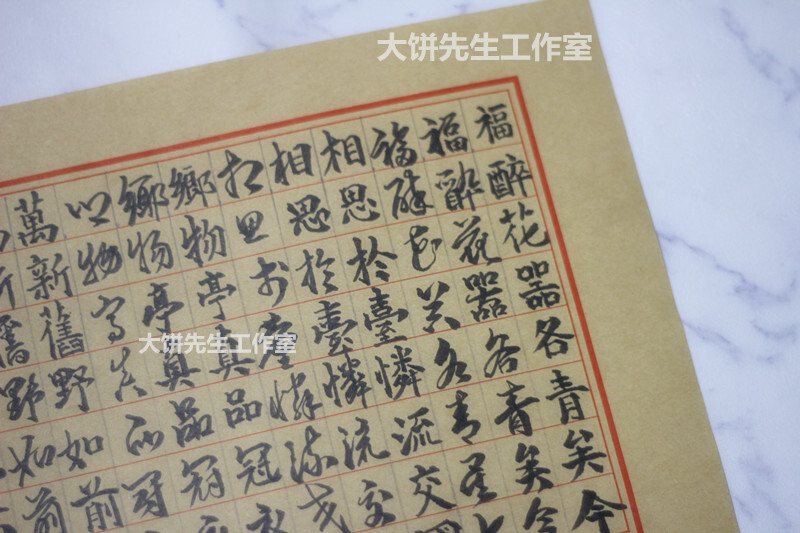 大饼先生工作室
福醉花器各青矣今
福醉花器各青矣今
福醉花器各青矣
相思於臺憐流交
相思於臺憐流交
相思於臺憐流交
鄉物亭真品冠
鄉物亭真品冠
鄉物亭真品冠
萬新舊野如前
新舊野如前
大饼先生工作室